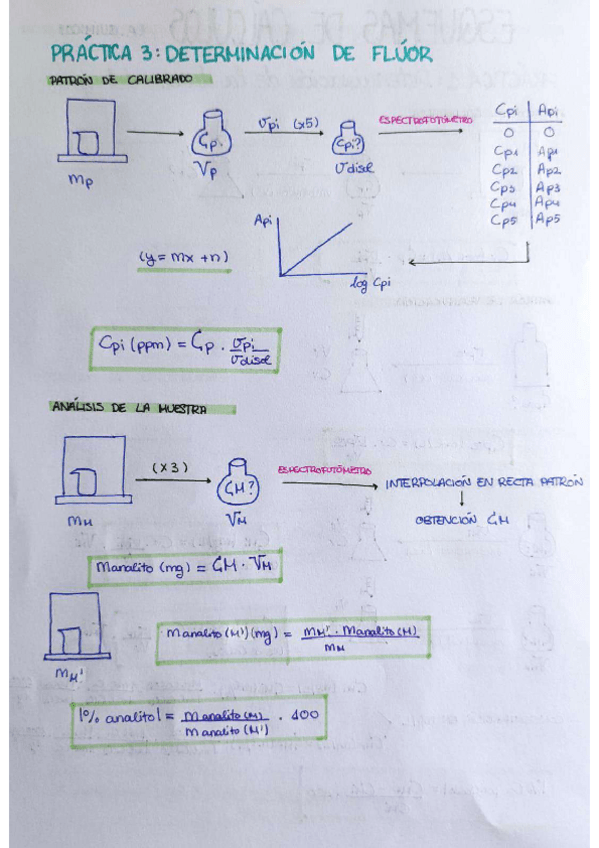 PRÁCTICA 3: DETERMINACIÓN DE FLÚOR
PATRÓN DE CALIBRADO
mp
Cp
Vp
vpi (x5)
Cpi?
vdisol
ESPECTROFOTÓMETRO
Cpi | Api
0 | 0
Cp1 | Ap1
Cp2 | Ap2
Cp3 | Ap3
Cp4 | Ap4
Cp5 | Ap5
(y = mx + n)
Api
log Cpi
Cpi (ppm) = Cp · vpi / vdisol
ANÁLISIS DE LA MUESTRA
mM
(x3)
CM?
VM
ESPECTROFOTÓMETRO
INTERPOLACIÓN EN RECTA PATRÓN
OBTENCIÓN CM
manalito (mg) = CM · VM
mM'
manalito (M') (mg) = mM' · manalito (M) / mM
|% analito| = manalito (M) / manalito (M') · 100